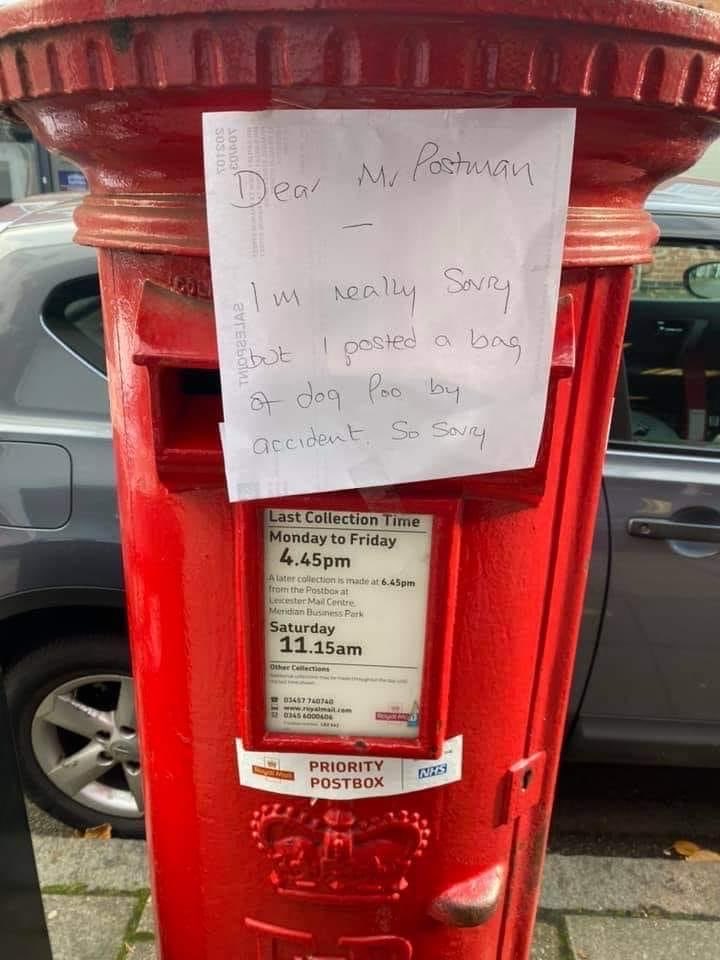 702107
704/03
SALESPOINT
Dear Mr Postman
—
I'm really Sorry
but I posted a bag
of dog Poo by
accident. So Sorry
Last Collection Time
Monday to Friday
4.45pm
A later collection is made at 6.45pm
from the Postbox at
Leicester Mail Centre,
Meridian Business Park
Saturday
11.15am
Other Collections
03457 740740
www.royalmail.com
0345 6000606
Royal Mail
Royal Mail
PRIORITY
POSTBOX
NHS